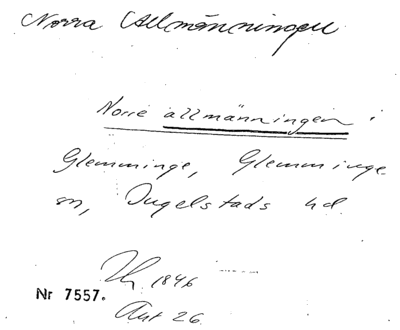 Norra Allmänningen
Norre allmänningen i
Glemminge, Glemminge
sn, Ingelstads hd.
1846
Nr 7557.
Akt 26